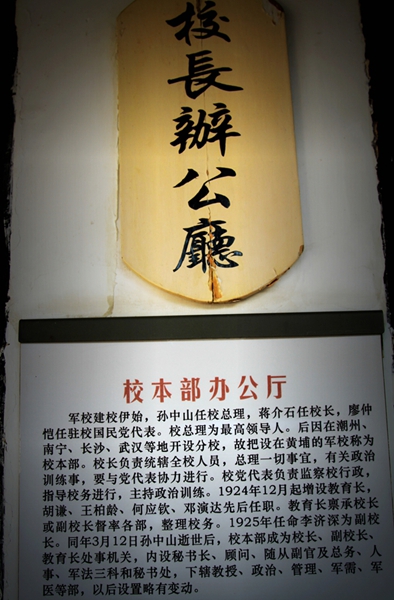 校長辦公廳
校本部办公厅
军校建校伊始，孙中山任校总理，蒋介石任校长，廖仲
恺任驻校国民党代表。校总理为最高领导人。后因在潮州、
南宁、长沙、武汉等地开设分校，故把设在黄埔的军校称为
校本部。校长负责统辖全校人员，总理一切事宜，有关政治
训练事，要与党代表协力进行。校党代表负责监察校行政，
指导校务进行，主持政治训练。1924年12月起增设教育长，
胡谦、王柏龄、何应钦、邓演达先后任职。教育长禀承校长
或副校长督率各部，整理校务。1925年任命李济深为副校
长。同年3月12日孙中山逝世后，校本部成为校长、副校长、
教育长处事机关，内设秘书长、顾问、随从副官及总务、人
事、军法三科和秘书处，下辖教授、政治、管理、军需、军
医等部，以后设置略有变动。